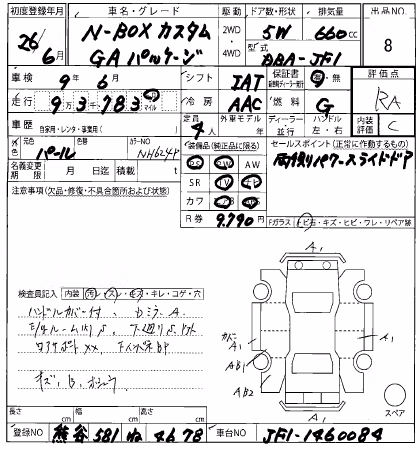 初度登録年月 車名・グレード 駆動 ドア数・形状 排気量 出品NO.
26 6月 N-BOX カスタム 2WD・4WD 5W 660cc 8
G Aパッケージ 型式 DBA-JF1
車検 9年 6月 シフト IAT 保証書 有・無 評価点
走行 9万3千783 マイル 冷房 AAC 燃料 G RA
車歴 自家用・レンタ・事業用( ) 定員 4人 外車モデル 年 ディーラー 並行 ハンドル 左・右 内装評価 C
外色 元色 パール 色替 カラーNO NH624P 装備品(純正品に限る) セールスポイント(正常に作動するもの)
名義変更期限 月 日迄 積載量 t PS PW AW 両側パワースライドドア
注意事項(欠品・修復・不具合箇所および状態) SR TV ナビ
カワ AB
R券 9,790円 Fガラス トビ石・キズ・ヒビ・ワレ・リペア跡
検査員記入 内装 汚レ・スレ・キズ・キレ・コゲ・穴
ハンドルカバー付、Dミラー A
キズ、B、
A1
カバー A1 A1
AB1
AB2
A1 スペア
長さ cm 幅 cm 高さ cm
登録NO 熊谷 581 ね 4678 車台NO JF1-1460084